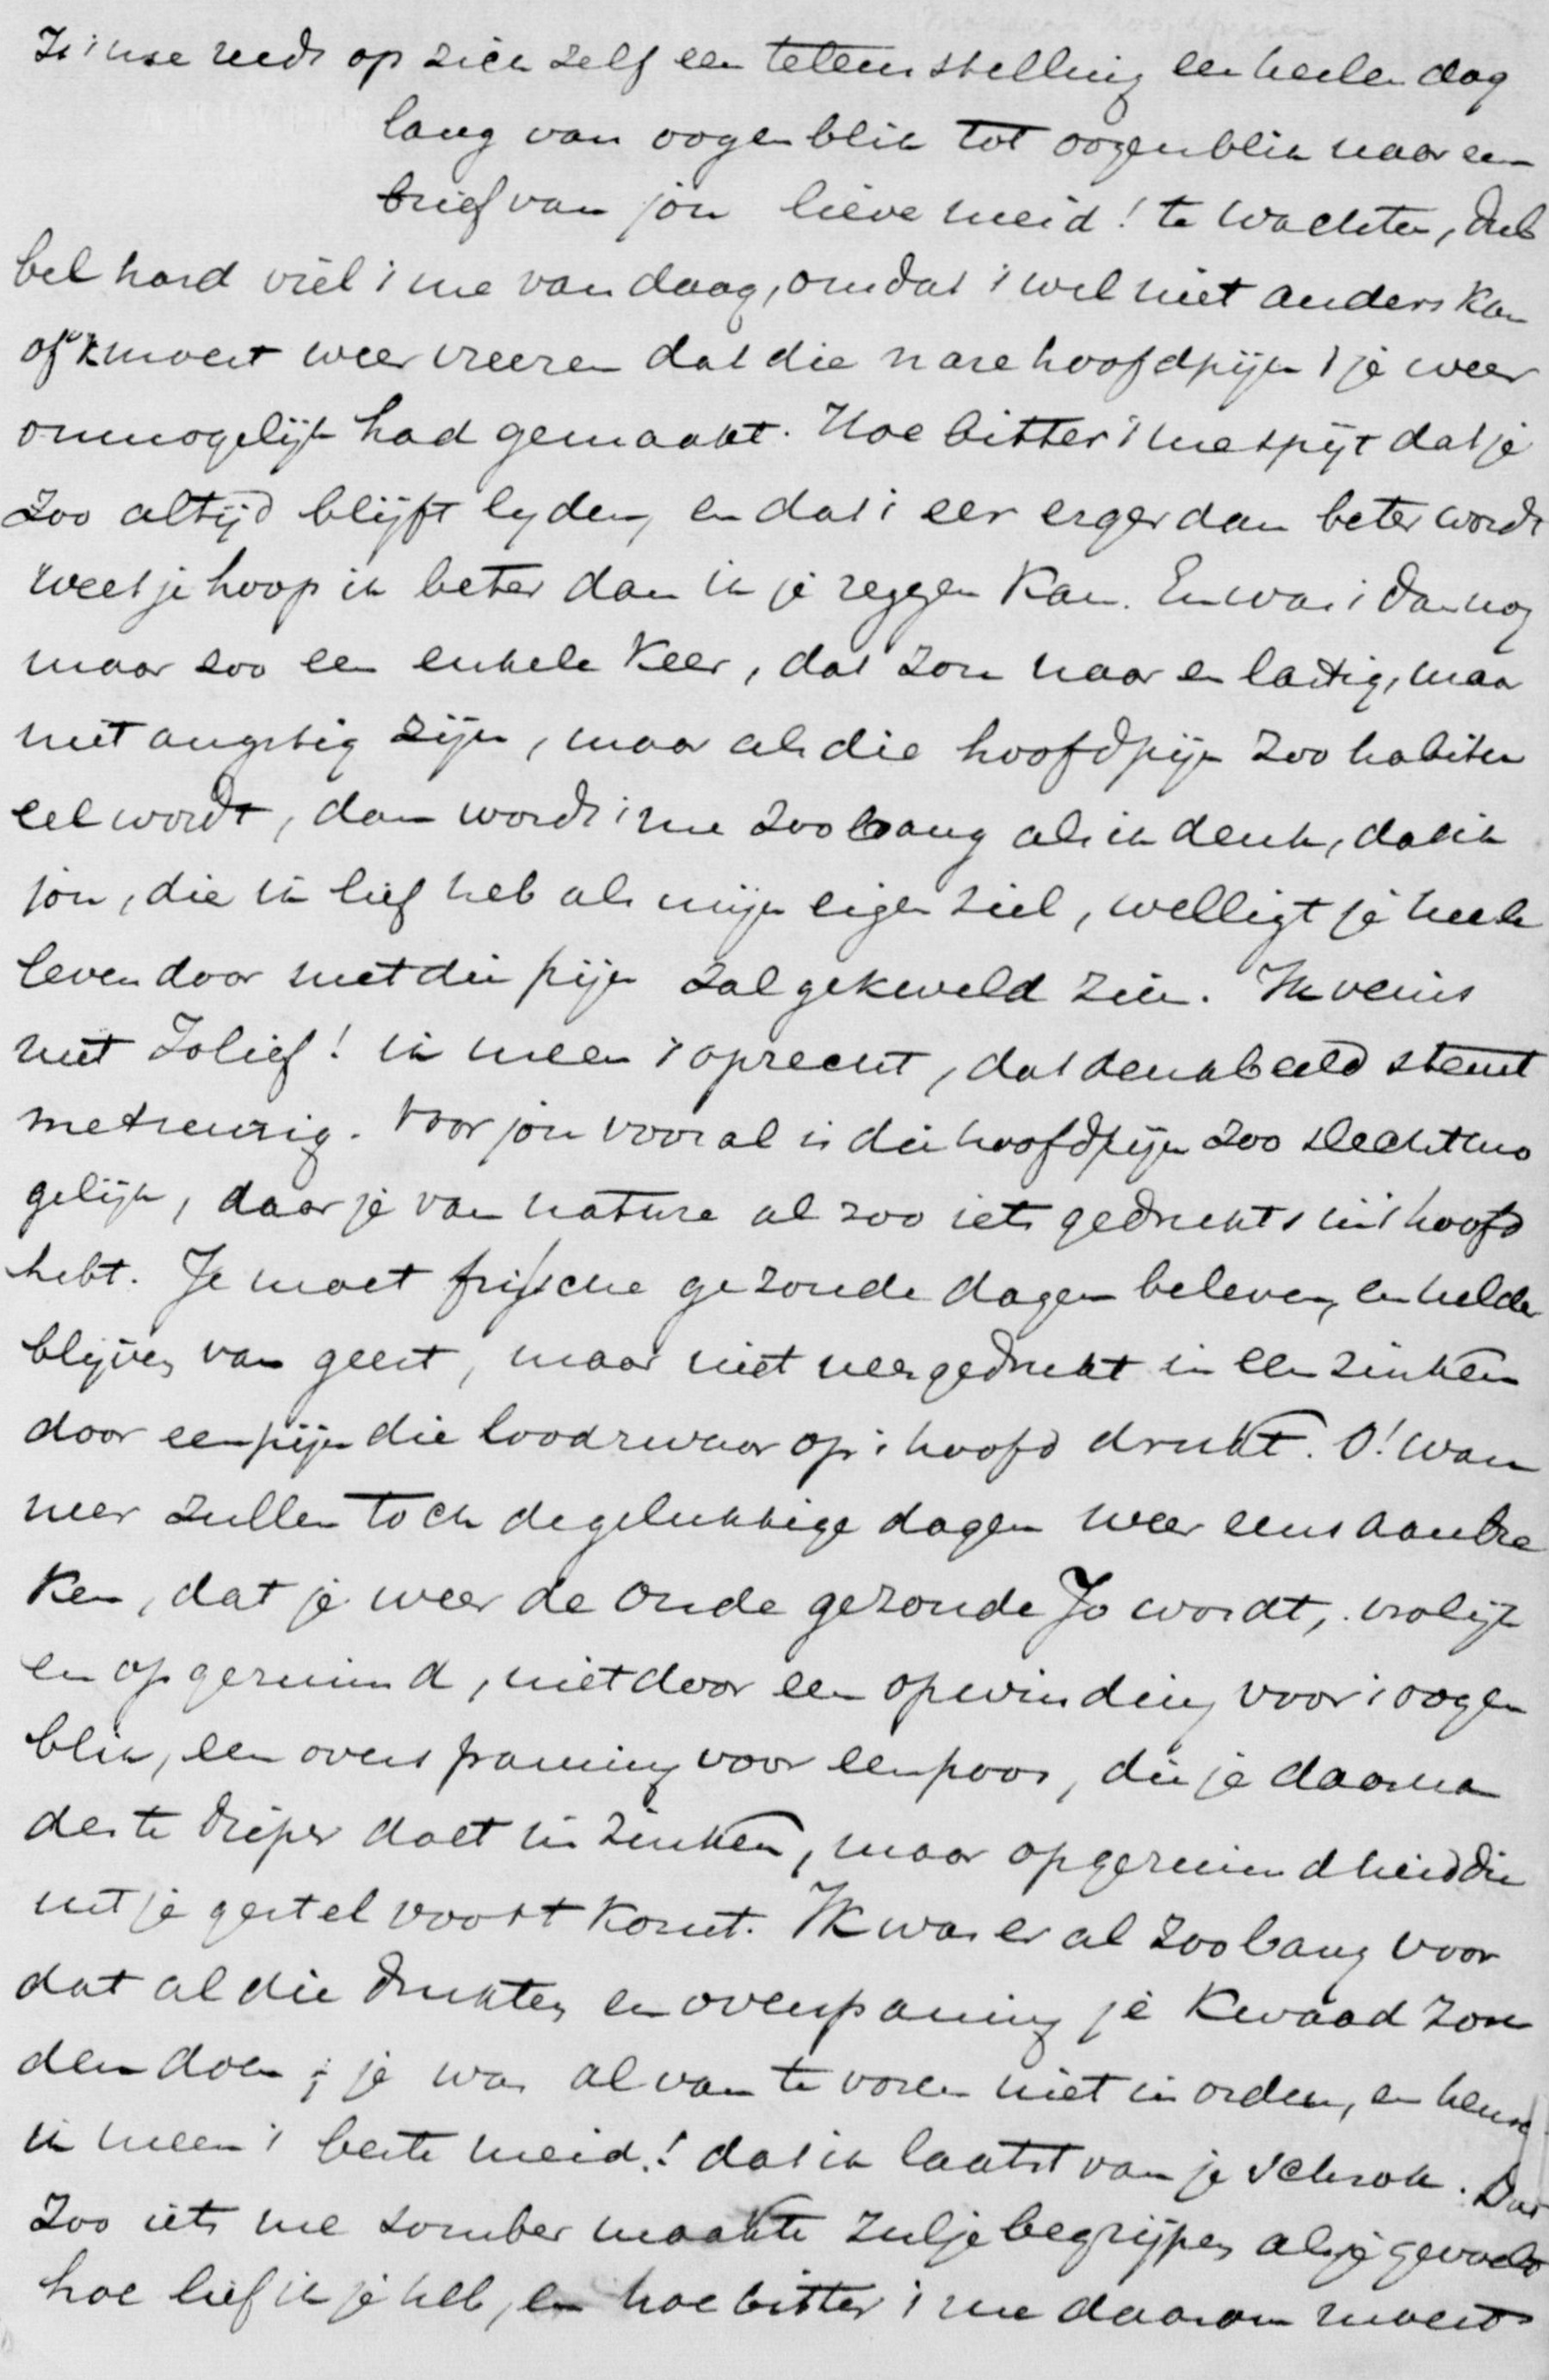 Is 't me reeds op zich zelf een teleurstelling een heelen dag
lang van oogenblik tot oogenblik naar een
brief van jou lieve meid! te wachten, dub
bel hard viel 't me vandaag, omdat 't wel niet anders kan
of 'k moest weer vreezen dat die nare hoofdpijn 't je weer
onmogelijk had gemaakt. Hoe bitter 't me spijt dat je
zoo altijd blijft lyden, en dat 't eer erger dan beter wordt
weet je hoop ik beter dan ik je zeggen kan. En was 't dan nog
maar zoo een enkele keer, dat zou naar en lastig, maar
niet angstig zijn, maar als die hoofdpijn zoo habitu
eel wordt, dan wordt 't me zoo bang als ik denk, dat ik
jou, die ik lief heb als mijn eigen ziel, welligt je heele
leven door met die pijn zal gekweld zien. Ik veins
niet Jo lief! ik meen 't oprecht, dat denkbeeld stemt
me treurig. Voor jou vooral is die hoofdpijn zoo slecht mo
gelijk, daar je van nature al zoo iets gedrukts in 't hoofd
hebt. Je moet frissche gezonde dagen beleven, en helder
blijven van geest, maar niet neergedrukt in een zinken
door een pijn die loodzwaar op 't hoofd drukt. O! wan
neer zullen toch de gelukkige dagen weer eens aanbre
ken, dat je weer de oude gezonde Jo wordt, vrolijk
en opgeruimd, niet door een opwinding voor 't oogen
blik, een overspanning voor een poos, die je daarna
des te dieper doet in zinken, maar opgeruimdheid die
uit je gestel voort komt. Ik was er al zoo bang voor
dat al die drukten en overspaning je kwaad zou
den doen; je was al van te voren niet in orden, en heusch
ik meen 't beste meid! dat ik laatst van je schrok. Dat
zoo iets me somber maakte zul je begrijpen als je gevoelt
hoe lief ik je heb, en hoe bitter 't me daarom moest